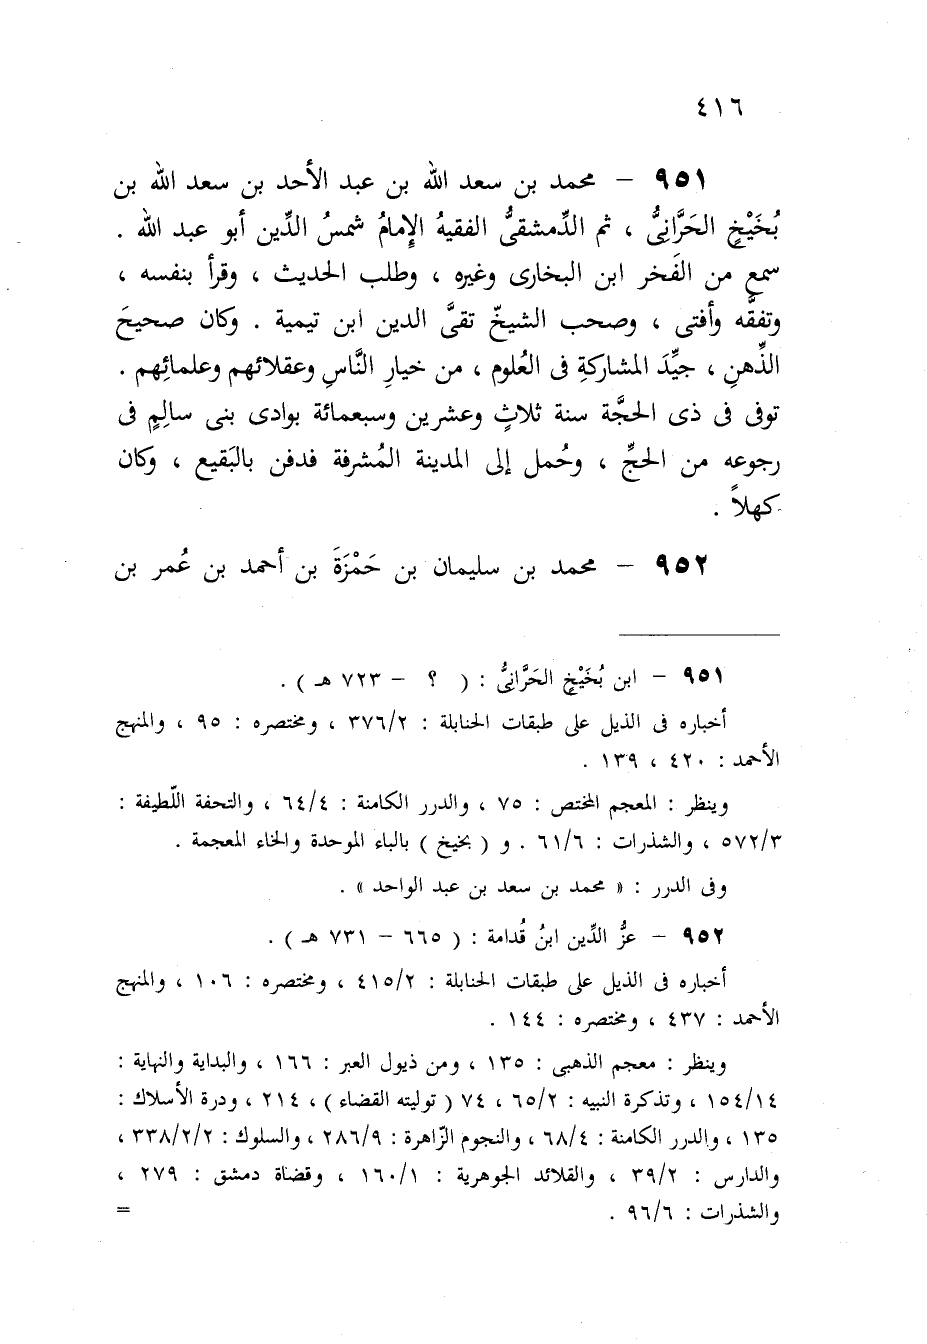 ٤١٦
٩٥١ – محمد بن سعد الله بن عبد الأحد بن سعد الله بن
بُخَيْخٍ الحَرَّانِىُّ ، ثم الدِّمشقىُّ الفقيهُ الإِمامُ شمسُ الدِّين أبو عبد الله .
سمع من الفَخر ابن البخارى وغيره ، وطلب الحديث ، وقرأ بنفسه ،
وتفقَّه وأفتى ، وصحب الشيخّ تقىَّ الدين ابن تيمية . وكان صحيحَ
الذِّهنِ ، جيِّدَ المشاركةِ فى العُلوم ، من خيارِ النَّاسِ وعقلائهم وعلمائِهم .
توفى فى ذى الحجَّة سنة ثلاثٍ وعشرين وسبعمائة بوادى بنى سالِمٍ فى
رجوعه من الحجِّ ، وحُمل إلى المدينة المُشرفة فدفن بالبَقيع ، وكان
كهلاً .
٩٥٢ – محمد بن سليمان بن حَمْزَةَ بن أحمد بن عُمر بن
٩٥١ – ابن بُخَيْخٍ الحَرَّانِىُّ : ( ؟ – ٧٢٣ هـ ) .
أخباره فى الذيل على طبقات الحنابلة : ٣٧٦/٢ ، ومختصره : ٩٥ ، والمنهج
الأحمد : ٤٢٠ ، ١٣٩ .
وينظر : المعجم المختص : ٧٥ ، والدرر الكامنة : ٦٤/٤ ، والتحفة اللّطيفة :
٥٧٢/٣ ، والشذرات : ٦١/٦ . و ( بخيخ ) بالباء الموحدة والخاء المعجمة .
وفى الدرر : « محمد بن سعد بن عبد الواحد » .
٩٥٢ – عزُّ الدِّين ابنُ قُدامة : ( ٦٦٥ – ٧٣١ هـ ) .
أخباره فى الذيل على طبقات الحنابلة : ٤١٥/٢ ، ومختصره : ١٠٦ ، والمنهج
الأحمد : ٤٣٧ ، ومختصره : ١٤٤ .
وينظر : معجم الذهبى : ١٣٥ ، ومن ذيول العبر : ١٦٦ ، والبداية والنهاية :
١٥٤/١٤ ، وتذكرة النبيه : ٦٥/٢ ، ٧٤ ( توليته القضاء ) ، ٢١٤ ، ودرة الأسلاك :
١٣٥ ، والدرر الكامنة : ٦٨/٤ ، والنجوم الزّاهرة : ٢٨٦/٩ ، والسلوك : ٣٣٨/٢/٢ ،
والدارس : ٣٩/٢ ، والقلائد الجوهرية : ١٦٠/١ ، وقضاة دمشق : ٢٧٩ ،
والشذرات : ٩٦/٦ . =